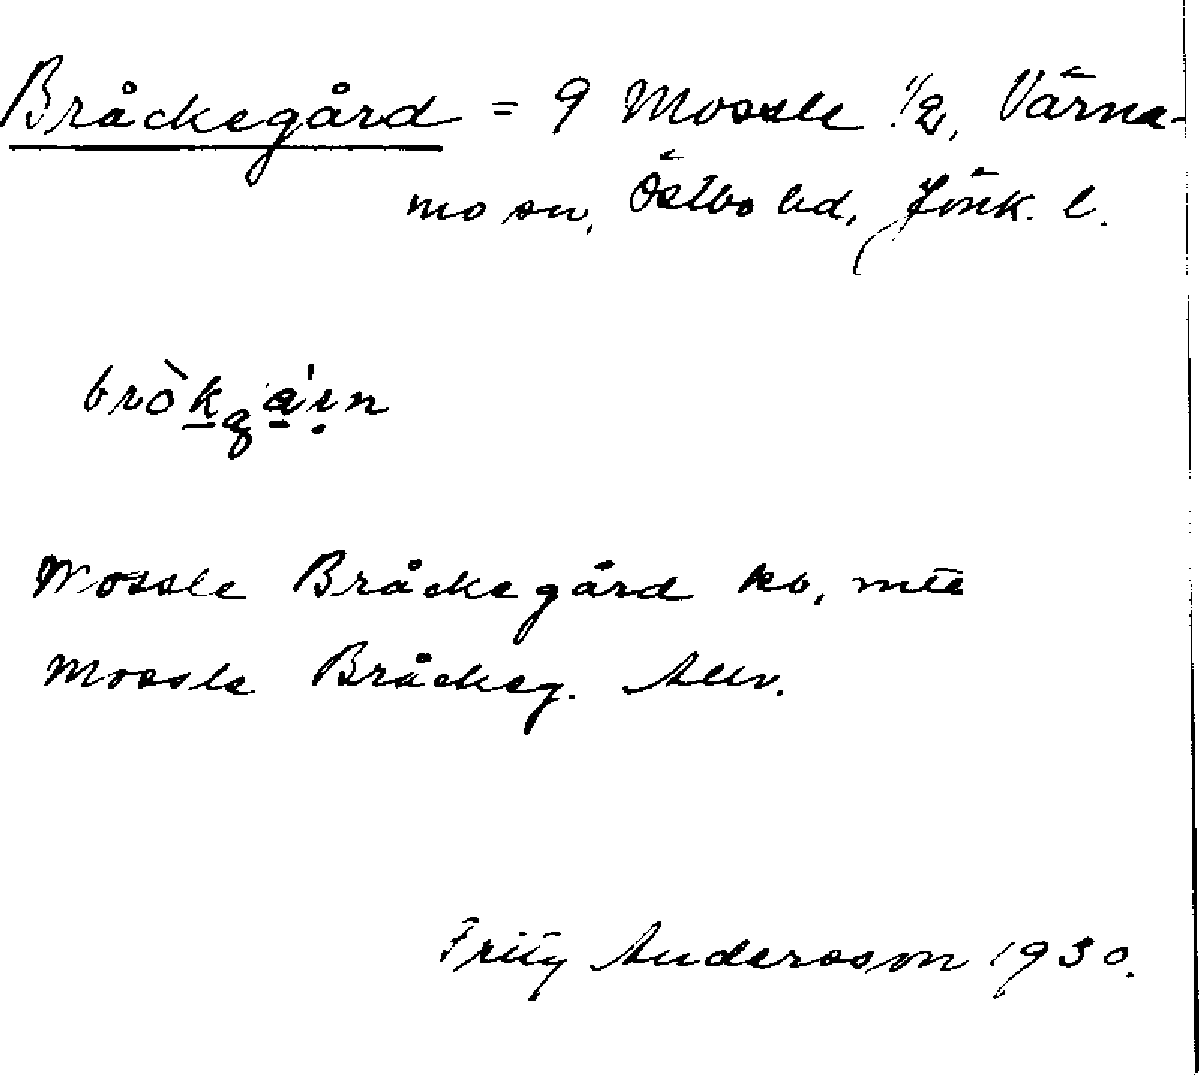 Bråckegård = 9 Mossle 1/2, Värna-
mo sn, Östbo hd, Jönk. l.
bròkgárn
Mossle Bråckegård kb, mtl
Mossle Bråckeg. Allv.
Fritz Andersson 1930.